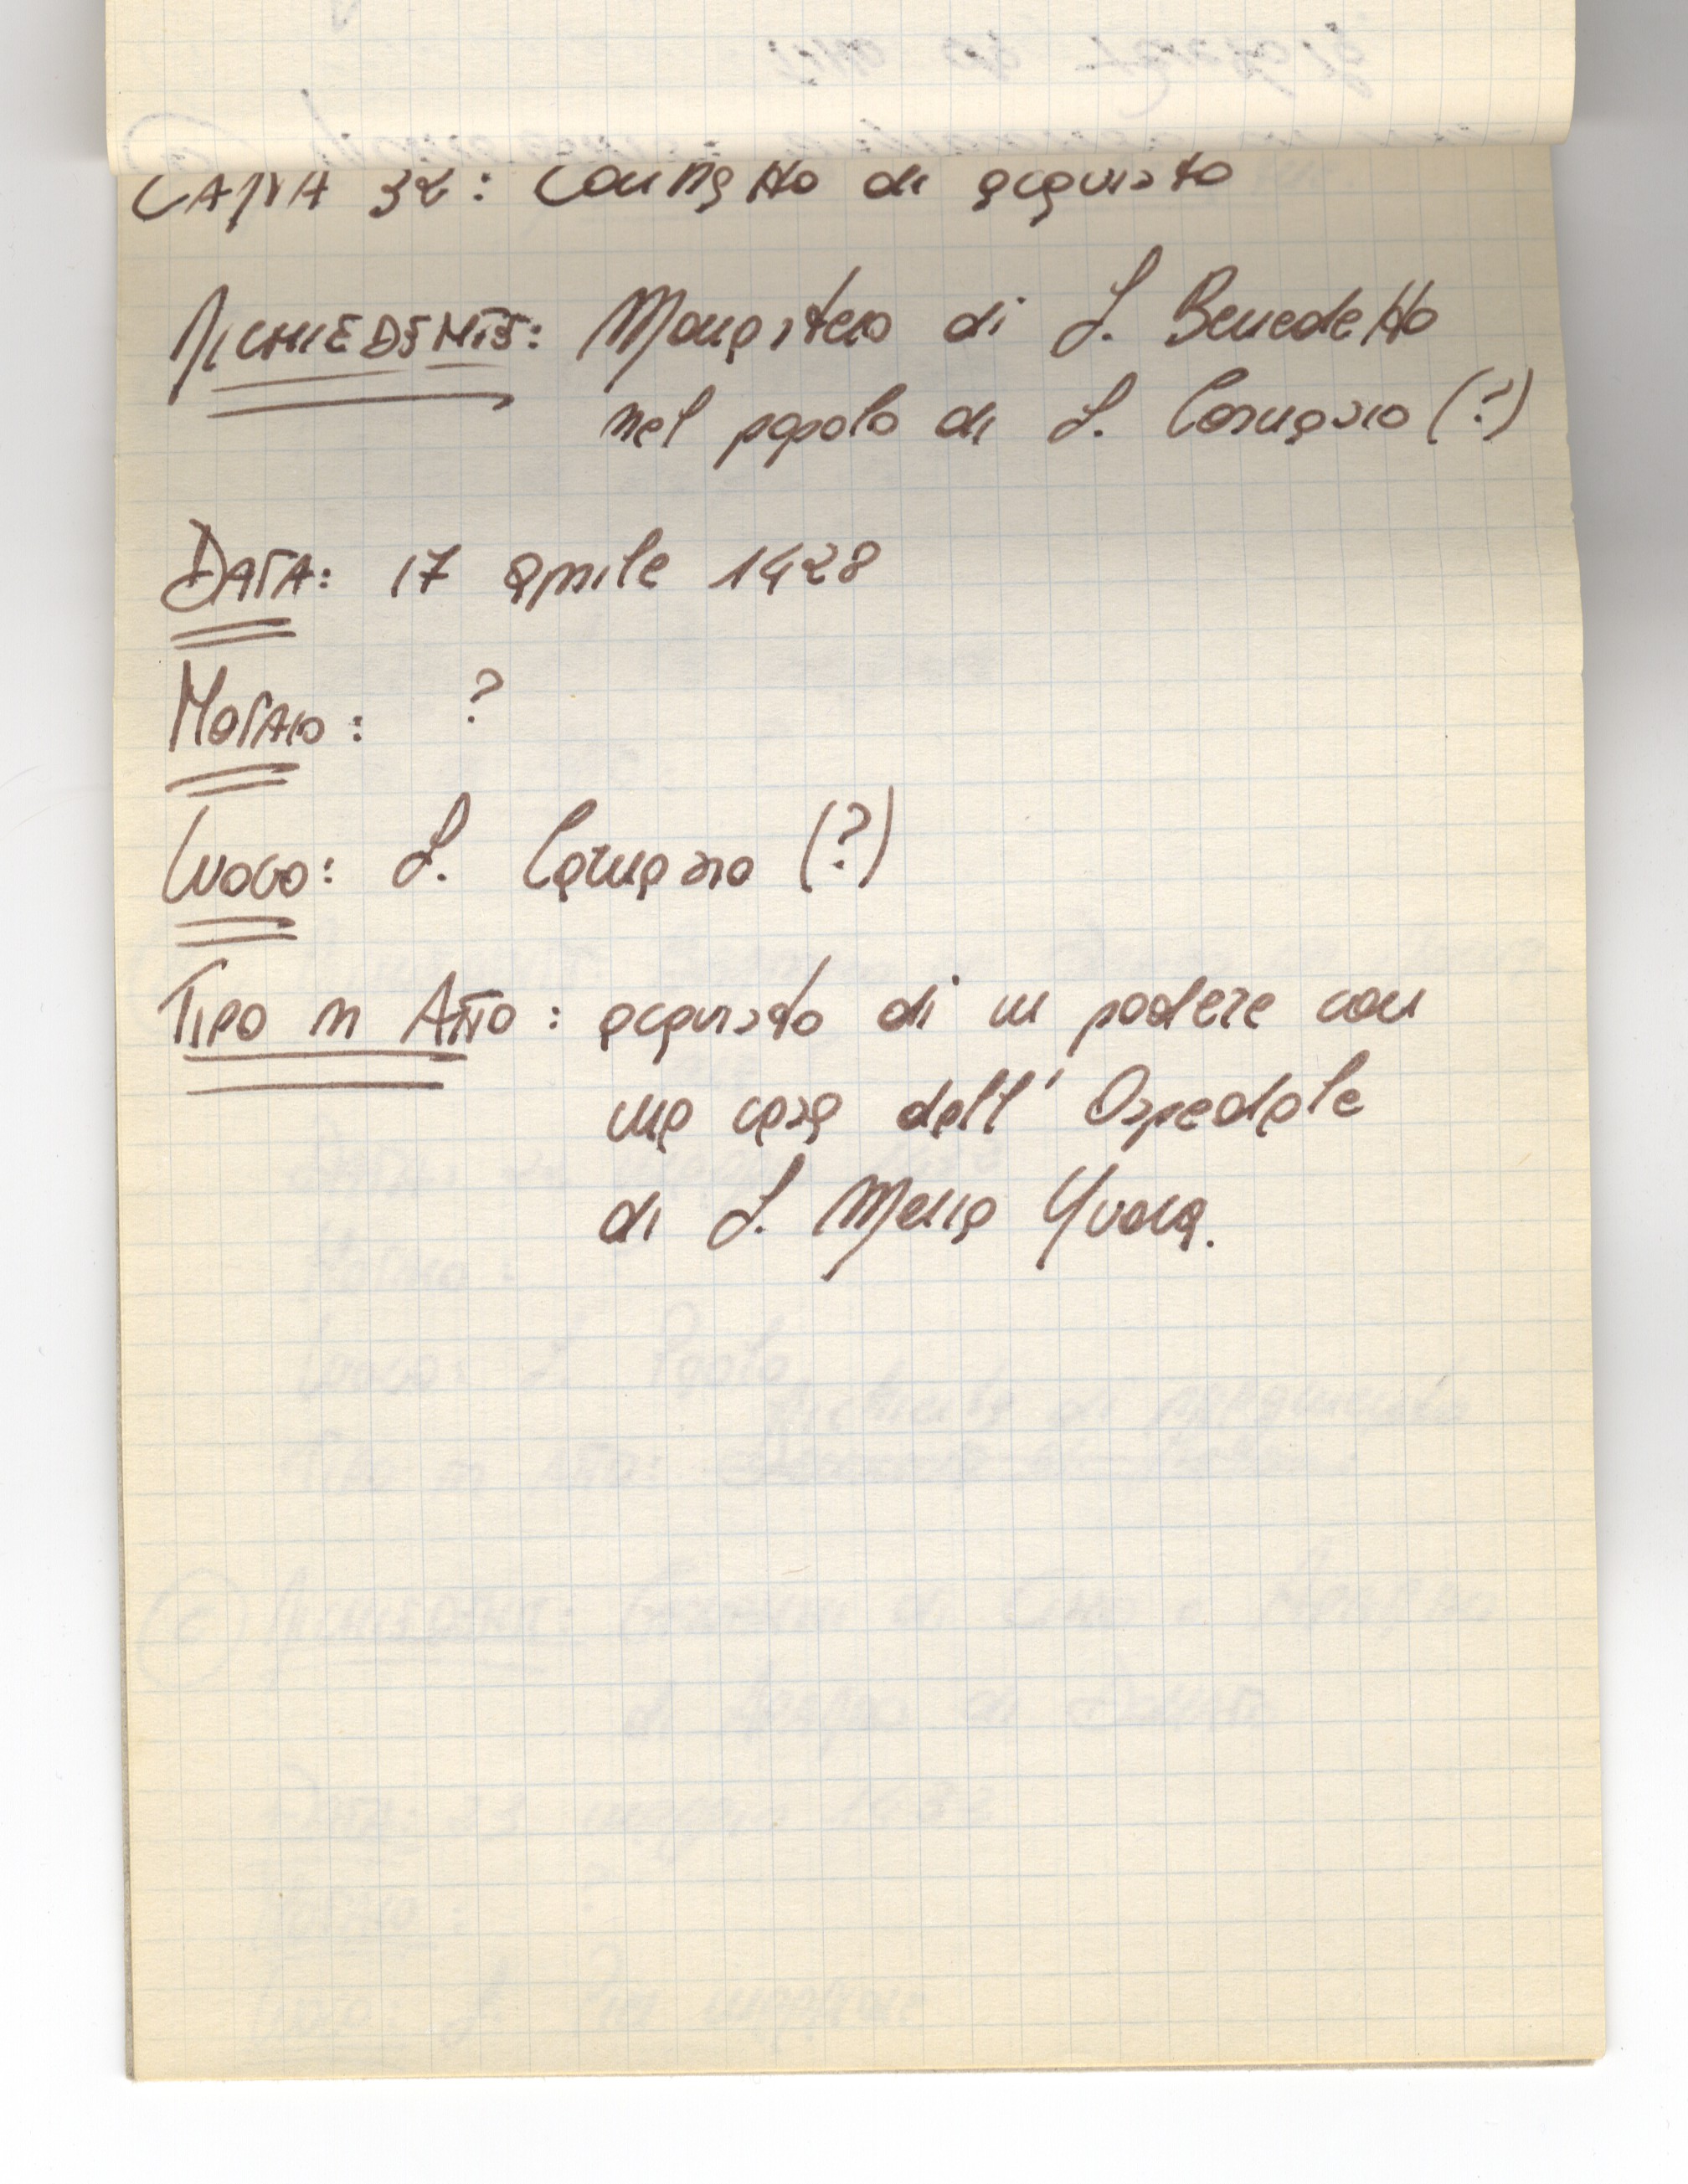 CARTA 32: Contratto di acquisto
RICHIEDENTE: Monastero di S. Benedetto
nel popolo di S. (?)
DATA: 17 aprile 1428
NOTAIO: ?
LUOGO: S. (?)
TIPO DI ATTO: acquisto di un podere con
una casa dall' Ospedale
di S. Maria Nuova.